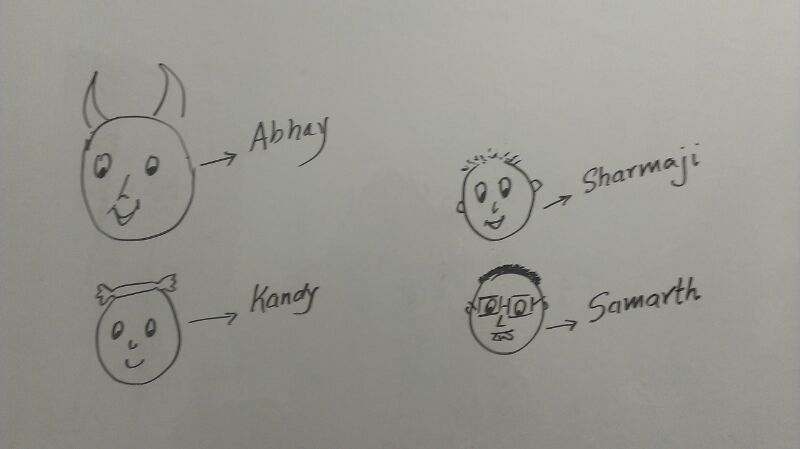 Abhay
Sharmaji
Kandy
Samarth